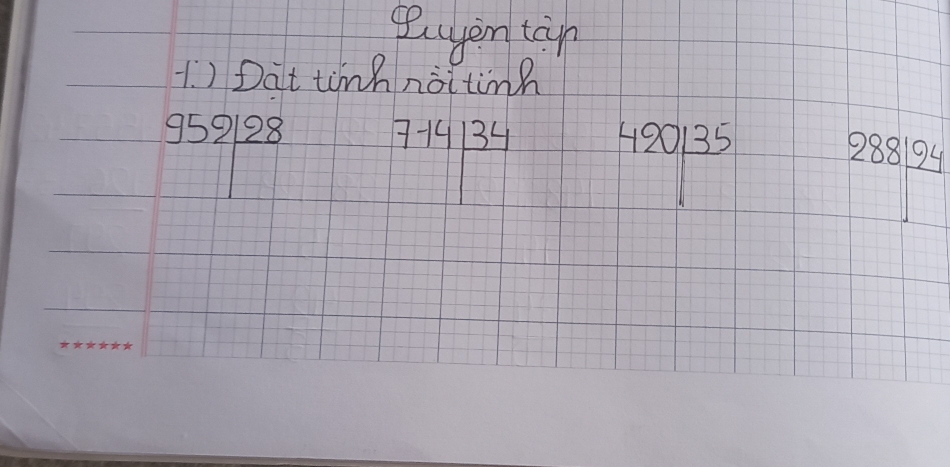 Luyện tập
1.) Đặt tính rồi tính
952 28 714 34 420 35 288 24